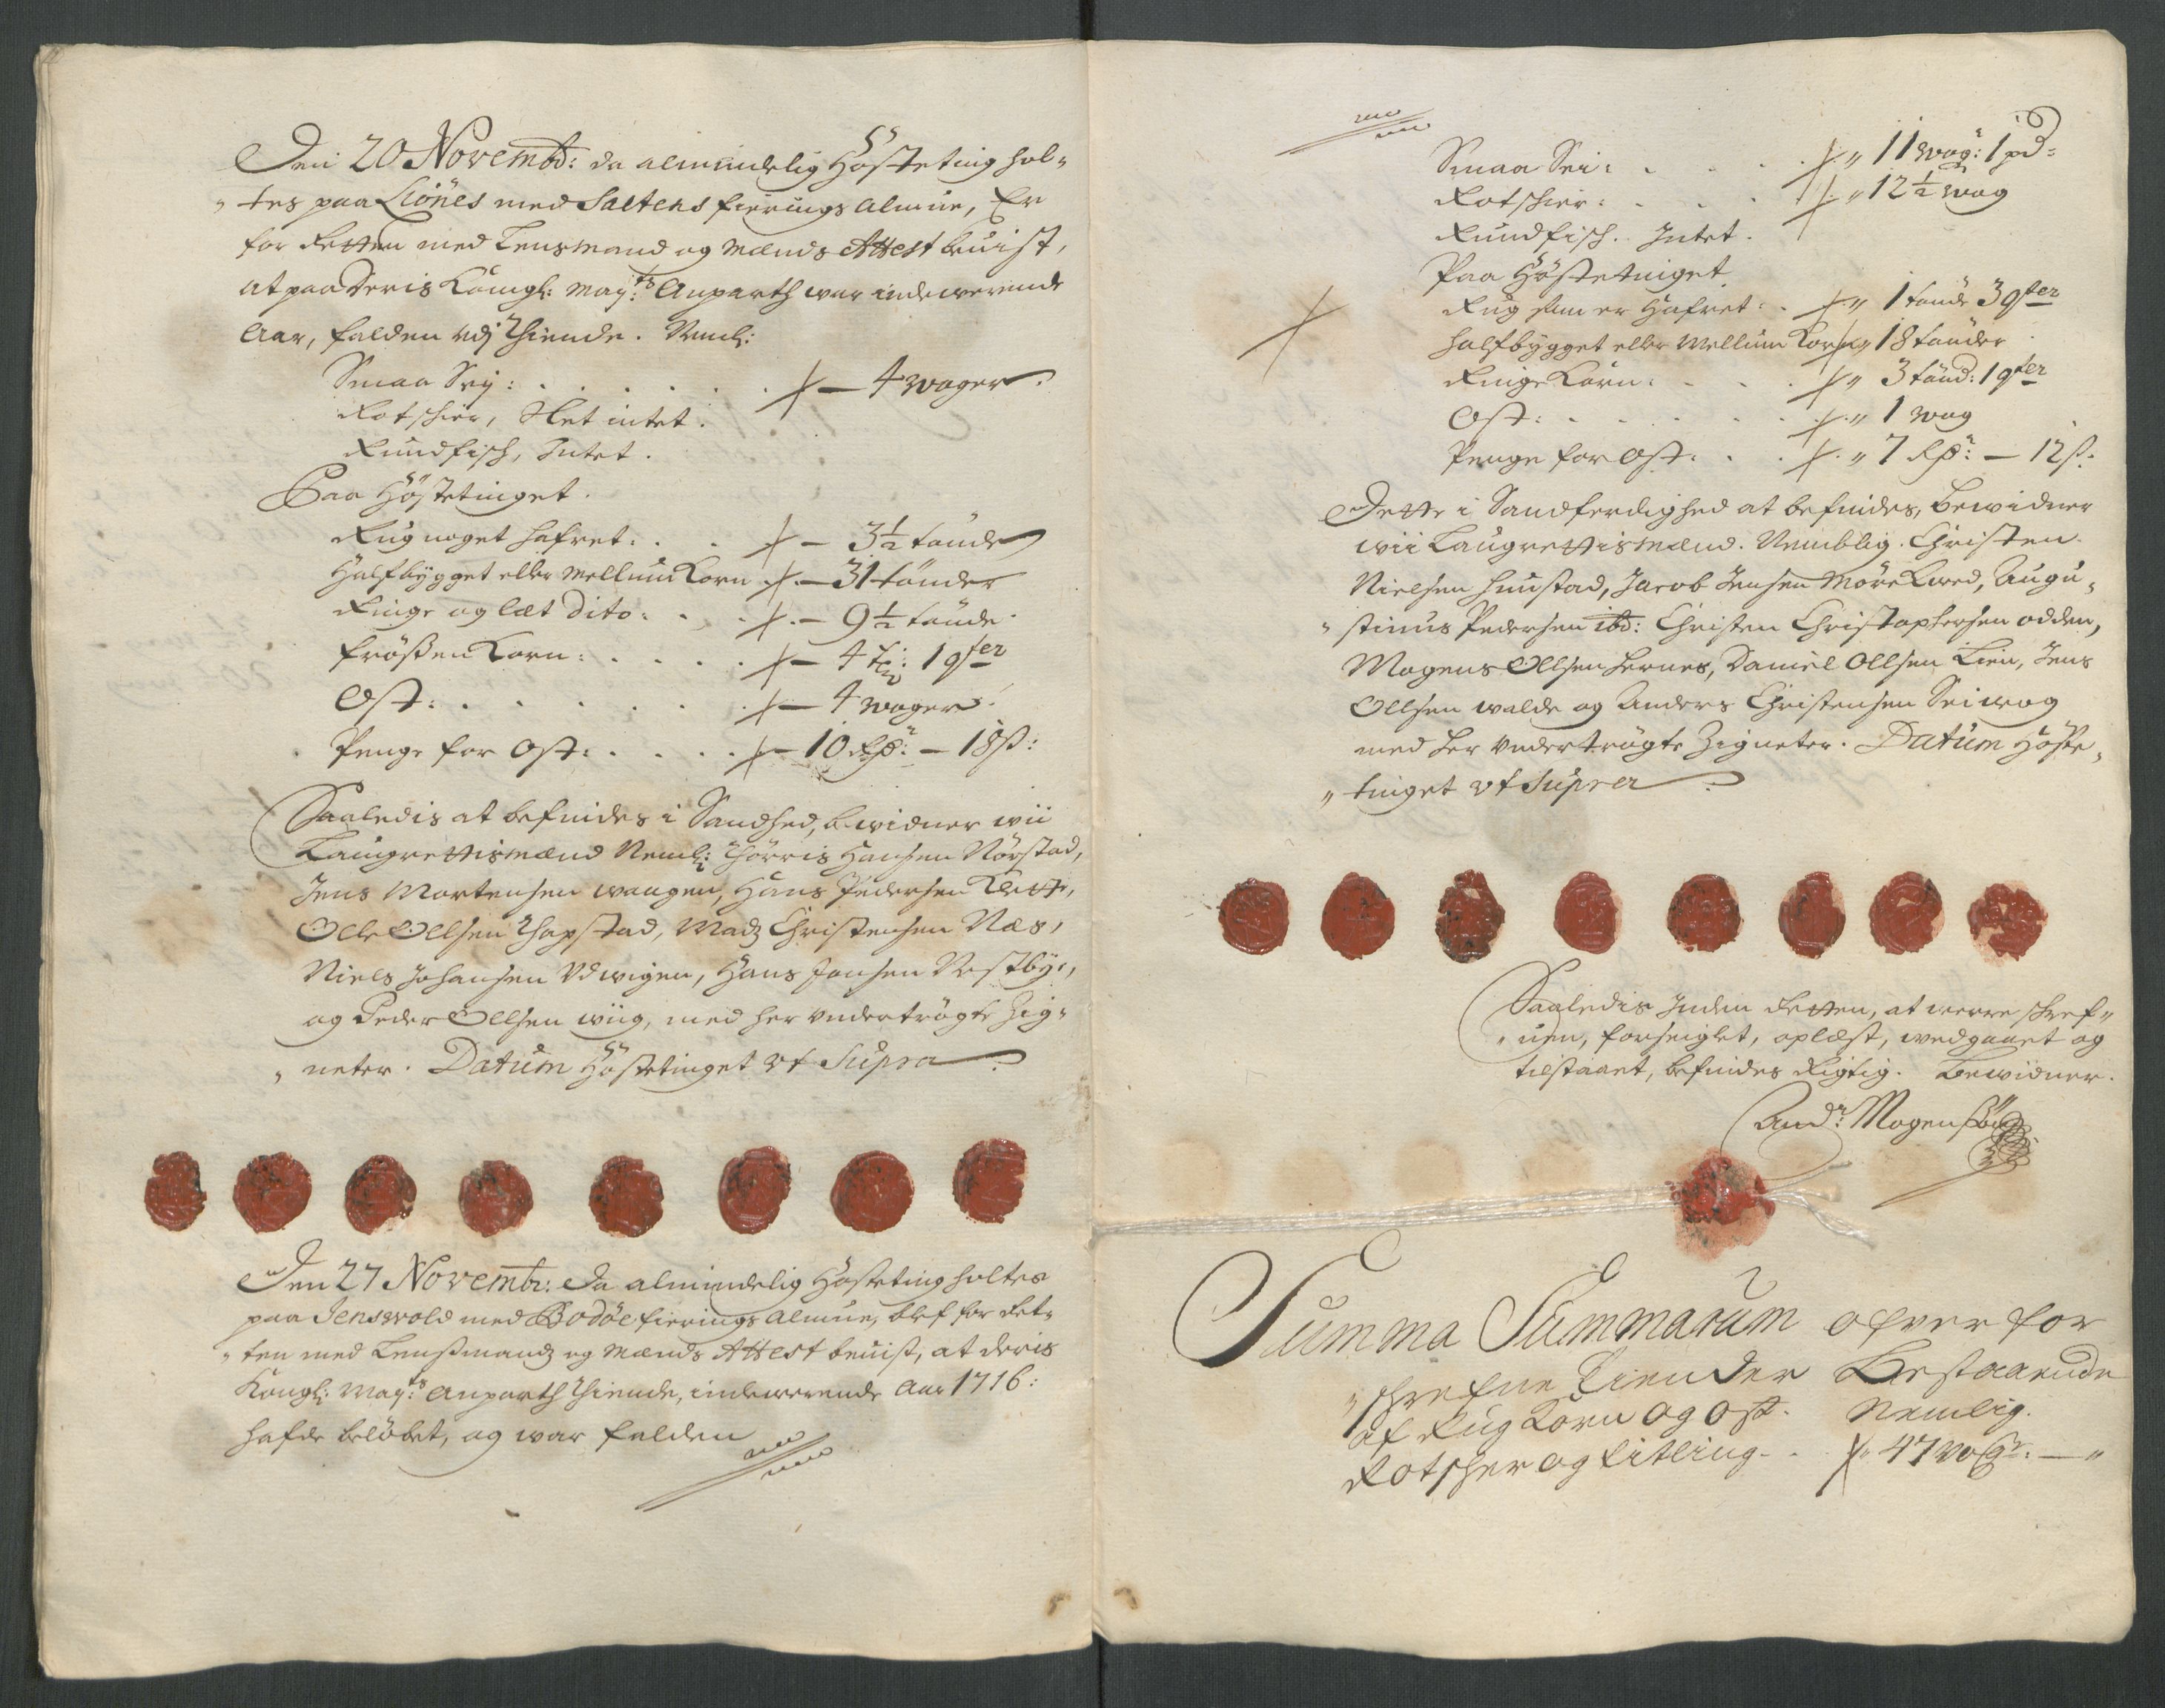 Den 20 Novembd: da almindelig Høsteting hol„
„tes paa Liönes med Saltens fierings Almue, Er
for Retten med Lensmand og Mænds Attest beuist,
at paa Deris Kongl: May:ts Anparth war indewerende
Aar, falden udj Thiende. Neml:
Smaa Seij: . . . . . . 4 woger.
Rotschier, Slet intet.
Rundfisch, Intet.
Paa Høstetinget.
Rug noget hafret: . . — 3½ tønde
Halfbygget eller Mellum Korn — 31 tønder
Ringe og læt Dito: . . . — 9½ tønde.
frössen Korn: . . . . — 4 Tr: 1 qter
Ost: . . . . . . — 4 woger.
Penge for Ost: . . . . — 10 Rdr: — 18 ß:
Saaledis at befindes i Sandhed, bewidner wii
Laugrettismænd Neml: Thørris Hansen Nørstad,
Jens Mortensen waagen, Hans Pedersen Klett,
Olle Ollsen Thapstad, Madz Christensen Næs,
Niels Johansen Udwigen, Hans Jonsen Westbye,
og Peder Ollsen wiig, med her undertrögte Zig„
„neter. Datum Høstetinget ut Supra
Den 27 Novembr: Da almindelig Høsteting holtes
paa Jenswold med Bodöe fierings Almue, blef for Ret„
„ten med Lensmandz og Mænds Attest beuist, at deris
Kongl: May:ts Anparth Thiende, indewerende Aar 1716:
hafde beløbet, og war falden
Smaa Sei: . . . „ 11 wog: 1 pd:
Rotschier: . . . „ 12½ wog
Rundfisch. Intet.
Paa Høstetinget.
Rug som er Hafret: . „ 1 tønde 3 qter
Halfbygget eller Mellum Korn „ 18 tønder
Ringe Korn: . . . „ 3 tønd: 1 qter
Ost: . . . . . . „ 1 wog
Penge for Ost: . . . „ 7 Rdr: — 12 ß:
Dette i Sandferdighed at befindes, Bewidner
wii Laugrettismænd. Nemblig. Christen
Nielsen Hunstad, Jacob Jensen Mörkwed, Augu„
„stinus Pedersen ibd: Christen Christophersen odden,
Mogens Ollsen Hernes, Daniel Ollsen Lien, Jens
Ollsen walde og Anders Christensen Seiwog
med her undertrögte Zigneter. Datum Høste„
„tinget ut Supra
Saaledis Inden Retten, at werre schref„
„uen, forseiglet, oplæst, wedgaaet og
tilstaaet, befindes Rigtig. Bewidner.
And: Mogensön
Summa Summarum ofver for
„schrefne Tiender Bestaaende
af Rug Korn og Ost. Nemlig.
Rotscher og Titling . . 47 woger: — „